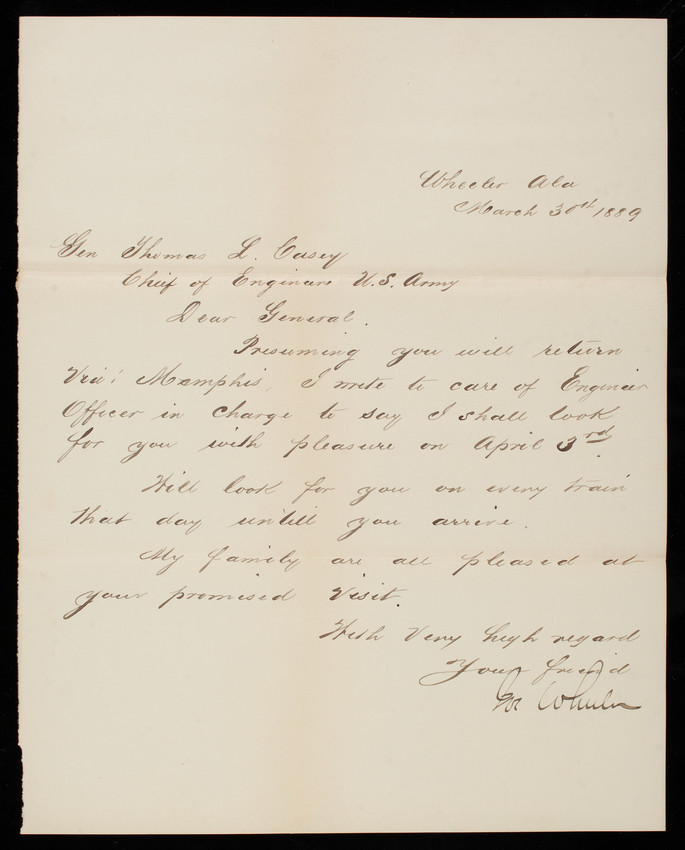 Wheeler Ala
March 30th 1889
Gen Thomas L. Casey
Chief of Engineers U.S. Army
Dear General.
Presuming you will return
Via Memphis, I write to care of Engineer
Officer in charge to say I shall look
for you with pleasure on April 3rd.
Will look for you on every train
that day untill you arrive.
My family are all pleased at
your promised visit.
With Very high regard
Your friend
Jos Wheeler